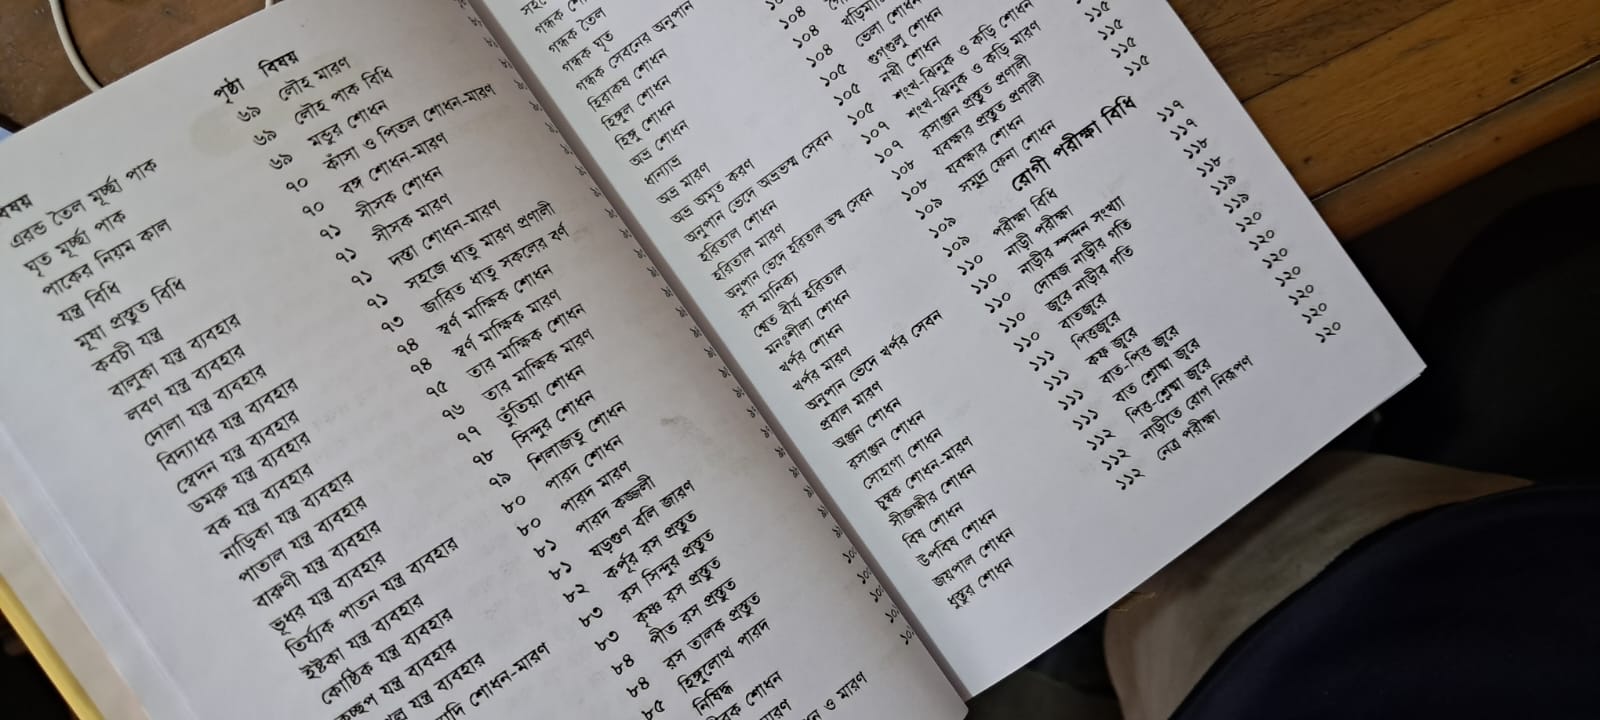 বিষয়
এরন্ড তৈল মূর্চ্ছা পাক
ঘৃত মূর্চ্ছা পাক
পাকের নিয়ম কাল
যন্ত্র বিধি
মূষা প্রস্তুত বিধি
কবচী যন্ত্র
বালুকা যন্ত্র ব্যবহার
লবণ যন্ত্র ব্যবহার
দোলা যন্ত্র ব্যবহার
বিদ্যাধর যন্ত্র ব্যবহার
স্বেদন যন্ত্র ব্যবহার
ডমরু যন্ত্র ব্যবহার
বক যন্ত্র ব্যবহার
নাড়িকা যন্ত্র ব্যবহার
পাতাল যন্ত্র ব্যবহার
বারুণী যন্ত্র ব্যবহার
ভূধর যন্ত্র ব্যবহার
তির্য্যক পাতন যন্ত্র ব্যবহার
ইষ্টকা যন্ত্র ব্যবহার
কোষ্ঠিক যন্ত্র ব্যবহার
যন্ত্র ব্যবহার
যন্ত্র ব্যবহার
শোধন-মারণ
পৃষ্ঠা
৬৯
৬৯
৬৯
৭০
৭০
৭১
৭১
৭১
৭১
৭৩
৭৪
৭৪
৭৫
৭৬
৭৭
৭৮
৭৯
৮০
৮০
৮১
৮১
৮২
৮৩
৮৩
৮৪
৮৪
৮৫
বিষয়
লৌহ মারণ
লৌহ পাক বিধি
মন্ডুর শোধন
কাঁসা ও পিতল শোধন-মারণ
বঙ্গ শোধন-মারণ
সীসক শোধন
সীসক মারণ
দস্তা শোধন-মারণ
সহজে ধাতু মারণ প্রণালী
জারিত ধাতু সকলের বর্ণ
স্বর্ণ মাক্ষিক শোধন
স্বর্ণ মাক্ষিক মারণ
তার মাক্ষিক শোধন
তার মাক্ষিক মারণ
তুঁতিয়া শোধন
সিন্দুর শোধন
শিলাজতু শোধন
পারদ শোধন
পারদ মারণ
পারদ কজ্জলী
ষড়গুণ বলি জারণ
কর্পূর রস প্রস্তুত
রস সিন্দুর প্রস্তুত
কৃষ্ণ রস প্রস্তুত
পীত রস প্রস্তুত
রস তালক প্রস্তুত
হিঙ্গুলোথ পারদ
নিষিদ্ধ
শোধন
ও মারণ
গন্ধক তৈল
গন্ধক ঘৃত
গন্ধক সেবনের অনুপান
হিরাকষ শোধন
হিঙ্গুল শোধন
হিঙ্গু শোধন
অভ্র শোধন
ধান্যাভ্র
অভ্র মারণ
অভ্র অমৃত করণ
অনুপান ভেদে অভ্রভস্ম সেবন
হরিতাল শোধন
হরিতাল মারণ
অনুপান ভেদে হরিতাল ভস্ম সেবন
রস মানিক্য
শ্বেত বীর্য হরিতাল
মনঃশীলা শোধন
খর্পর শোধন
খর্পর মারণ
অনুপান ভেদে খর্পর সেবন
প্রবাল মারণ
অঞ্জন শোধন
রসাঞ্জন শোধন
সোহাগা শোধন
চুম্বক শোধন-মারণ
সীজক্ষীর শোধন
বিষ শোধন
উপবিষ শোধন
জয়পাল শোধন
ধুস্তুর শোধন
১০৪
১০৪
১০৫
১০৫
১০৫
১০৭
১০৭
১০৮
১০৮
১০৯
১০৯
১০৯
১১০
১১০
১১০
১১০
১১০
১১১
১১১
১১১
১১১
১১২
১১২
১১২
ভেলা শোধন
গুগ্গুলু শোধন
নখী শোধন
শংখ-ঝিনুক ও কড়ি শোধন
শংখ-ঝিনুক ও কড়ি মারণ
রসাঞ্জন প্রস্তুত প্রণালী
যবক্ষার প্রস্তুত প্রণালী
যবক্ষার শোধন
সমুদ্র ফেনা শোধন
রোগী পরীক্ষা বিধি
পরীক্ষা বিধি
নাড়ী পরীক্ষা
নাড়ীর স্পন্দন সংখ্যা
দোষজ নাড়ীর গতি
জ্বরে নাড়ীর গতি
বাতজ্বরে
পিত্তজ্বরে
কফ জ্বরে
বাত-পিত্ত জ্বরে
বাত শ্লেষ্মা জ্বরে
পিত্ত-শ্লেষ্মা জ্বরে
নাড়ীতে রোগ নিরূপণ
নেত্র পরীক্ষা
১১৫
১১৫
১১৫
১১৭
১১৭
১১৮
১১৮
১১৯
১১৯
১২০
১২০
১২০
১২০
১২০
১২০
১২০